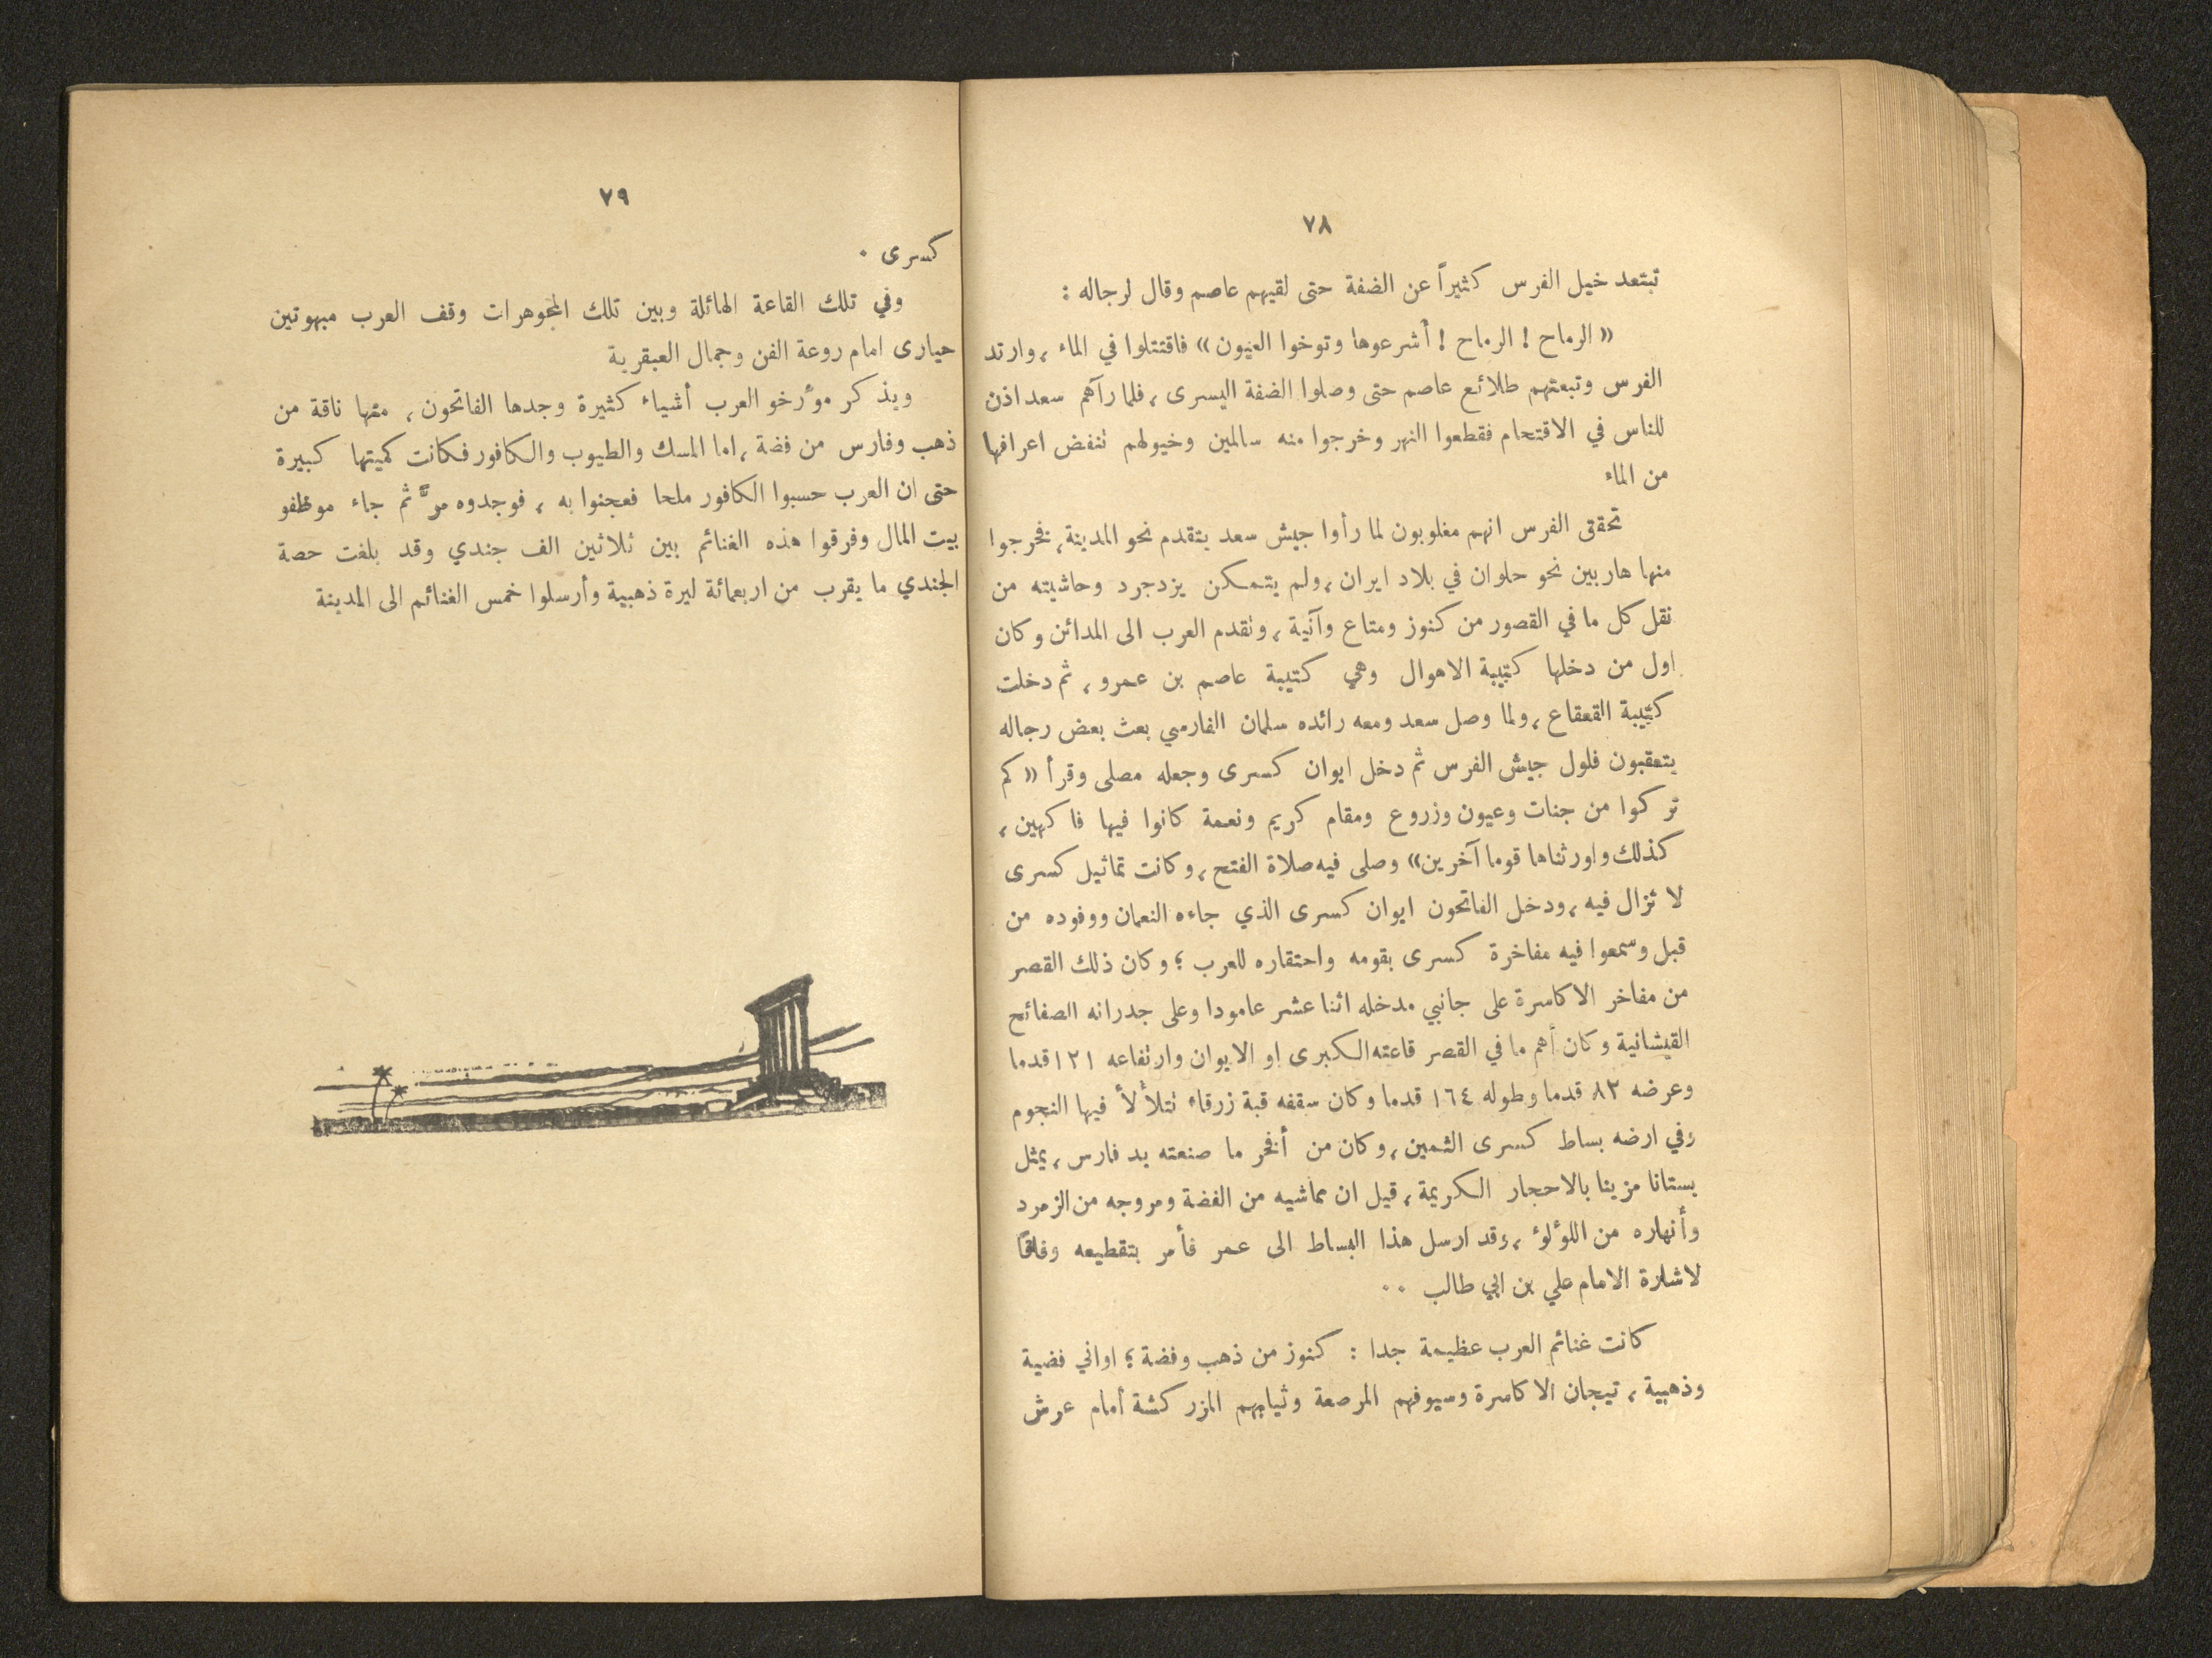 ٧٨
تبتعد خيل الفرس كثيراً عن الضفة حتى لقيهم عاصم وقال لرجاله :
« الرماح ! الرماح ! أشرعوها وتوخوا العيون » فاقتتلوا في الماء ، وارتد
الفرس وتبعتهم طلائع عاصم حتى وصلوا الضفة اليسرى ، فلما رآهم سعد اذن
للناس في الاقتحام فقطعوا النهر وخرجوا منه سالمين وخيولهم تنفض اعرافها
من الماء
تحقق الفرس انهم مغلوبون لما رأوا جيش سعد يتقدم نحو المدينة ، فخرجوا
منها هاربين نحو حلوان في بلاد ايران ، ولم يتمكن يزدجرد وحاشيته من
نقل كل ما في القصور من كنوز ومتاع وآنية ، وتقدم العرب الى المدائن وكان
اول من دخلها كتيبة الاهوال وهي كتيبة عاصم بن عمرو ، ثم دخلت
كتيبة القعقاع ، ولما وصل سعد ومعه رائده سلمان الفارسي بعث بعض رجاله
يتعقبون فلول جيش الفرس ثم دخل ايوان كسرى وجعله مصلى وقرأ « كم
تركوا من جنات وعيون وزروع ومقام كريم ونعمة كانوا فيها فاكهين ،
كذلك واورثناها قوما آخرين » وصلى فيه صلاة الفتح ، وكانت تماثيل كسرى
لا تزال فيه ، ودخل الفاتحون ايوان كسرى الذي جاءه النعمان ووفوده من
قبل وسمعوا فيه مفاخرة كسرى بقومه واحتقاره للعرب ؛ وكان ذلك القصر
من مفاخر الاكاسرة على جانبي مدخله اثنا عشر عامودا وعلى جدرانه الصفائح
القيشانية وكان أهم ما في القصر قاعته الكبرى او الايوان وارتفاعه ١٢١ قدما
وعرضه ٨٢ قدما وطوله ١٦٤ قدما وكان سقفه قبة زرقاء تتلألأ فيها النجوم
وفي ارضه بساط كسرى الثمين ، وكان من أفخر ما صنعته يد فارس ، يمثل
بستانا مزينا بالاحجار الكريمة ، قيل ان مماشيه من الفضة ومروجه من الزمرد
وأنهاره من اللؤلؤ ، وقد ارسل هذا البساط الى عمر فأمر بتقطيعه وفاقاً
لاشارة الامام علي بن ابي طالب ..
كانت غنائم العرب عظيمة جدا : كنوز من ذهب وفضة ؛ اواني فضية
وذهبية ، تيجان الاكاسرة وسيوفهم المرصعة وثيابهم المزركشة أمام عرش
٧٩
كسرى .
وفي تلك القاعة الهائلة وبين تلك المجوهرات وقف العرب مبهوتين
حيارى امام روعة الفن وجمال العبقرية
ويذكر مؤرخو العرب أشياء كثيرة وجدها الفاتحون ، منها ناقة من
ذهب وفارس من فضة ، اما المسك والطيوب والكافور فكانت كميتها كبيرة
حتى ان العرب حسبوا الكافور ملحا فعجنوا به ، فوجدوه مرًّ ثم جاء موظفو
بيت المال وفرقوا هذه الغنائم بين ثلاثين الف جندي وقد بلغت حصة
الجندي ما يقرب من اربعمائة ليرة ذهبية وأرسلوا خمس الغنائم الى المدينة